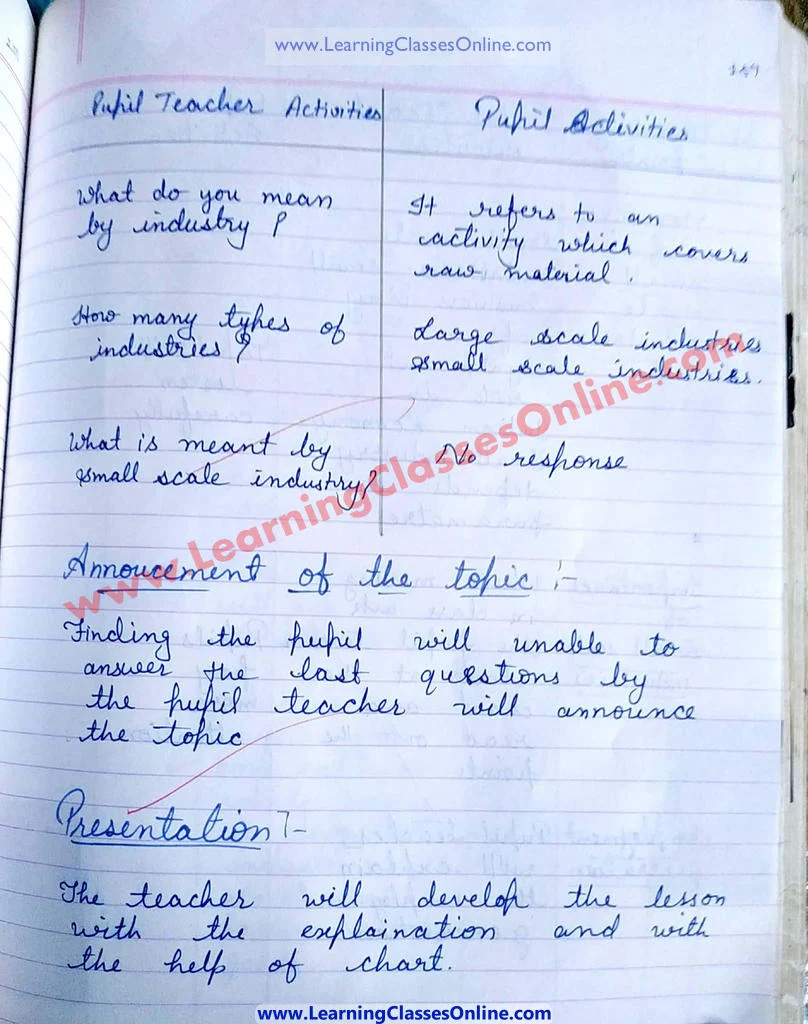 www.LearningClassesOnline.com
Pupil Teacher Activities
Pupil Activities
What do you mean
by industry ?
It refers to an
activity which covers
raw material .
How many types of
industries ?
Large scale industries
small scale industries.
What is meant by
small scale industry?
No response
www.LearningClassesOnline.com
Annoucement of the topic :-
Finding the pupil will unable to
answer the last questions by
the pupil teacher will announce
the topic
Presentation :-
The teacher will develop the lesson
with the explaination and with
the help of chart.
www.LearningClassesOnline.com